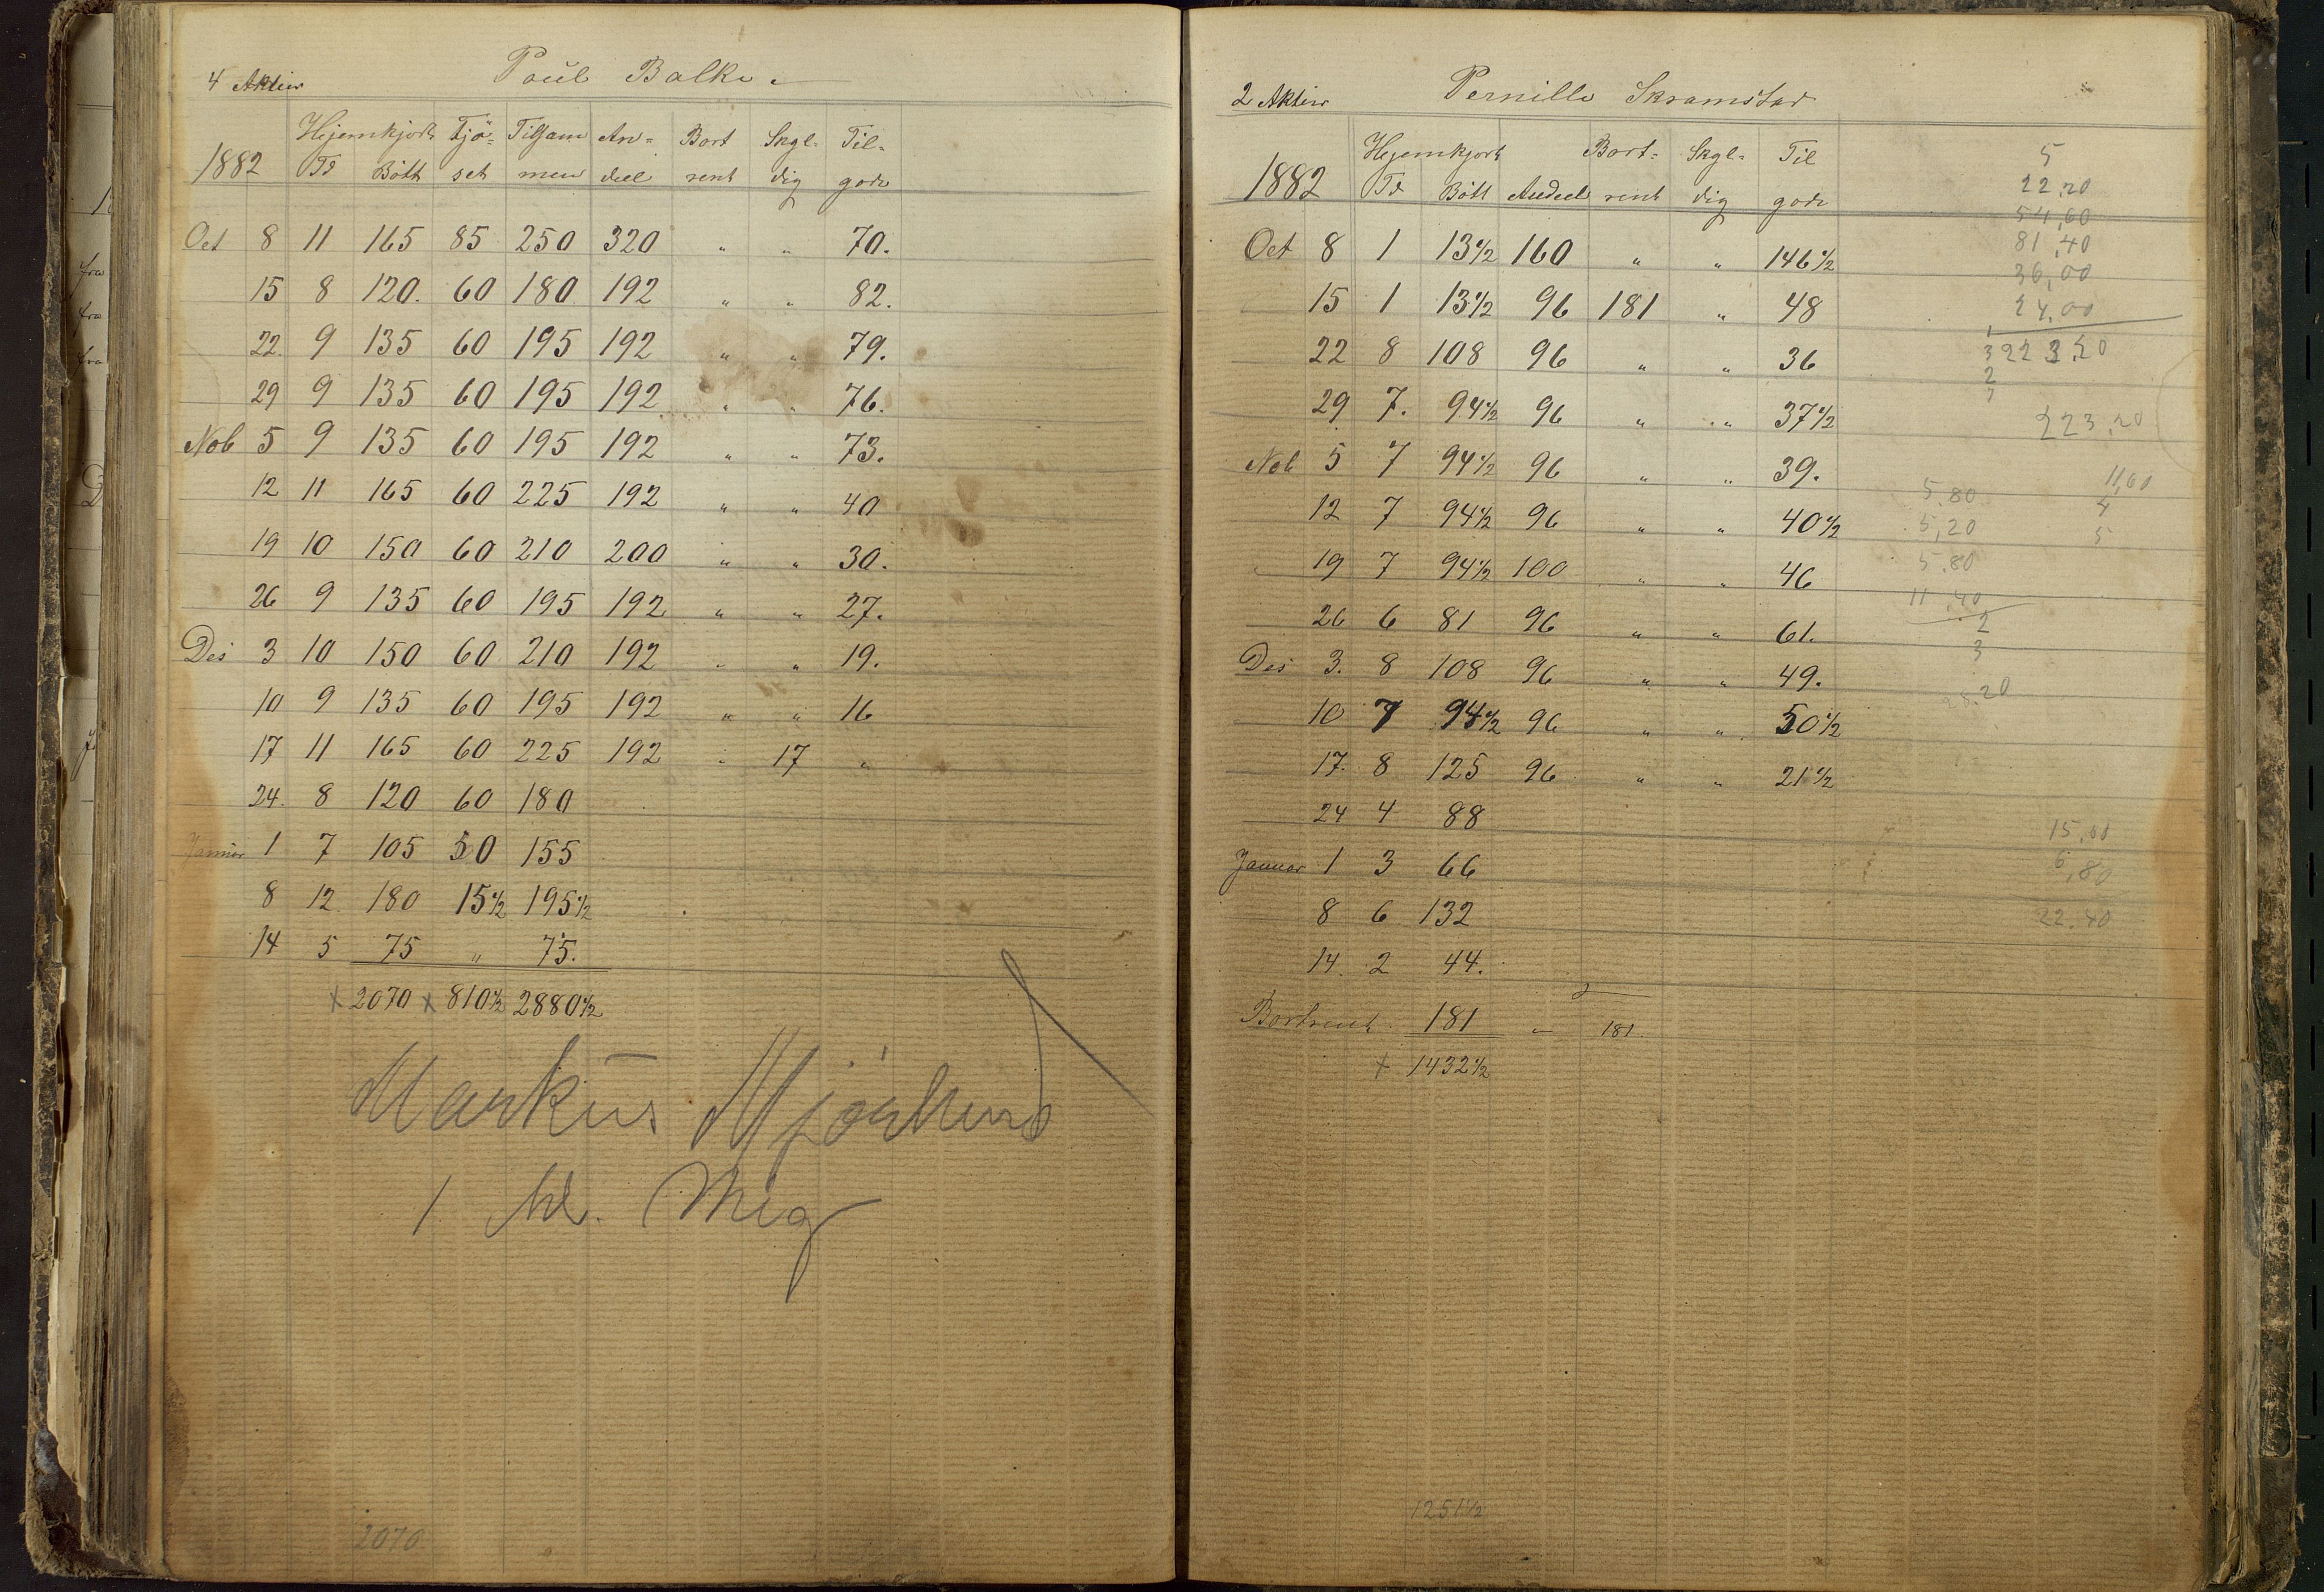 4 Aktier Paul Balke
1882 Hjemkjort Tjø- Tilsam An- Bort Skyl- Til-
Td Bøtt set men deel rent dig gode
Oct 8 11 165 85 250 320 " " 70.
15 8 120. 60 180 192 " " 82.
22. 9 135 60 195 192 " " 79.
29 9 135 60 195 192 " " 76.
Nob 5 9 135 60 195 192 " " 73.
12 11 165 60 225 192 " " 40
19 10 150 60 210 200 " " 30.
26 9 135 60 195 192 " " 27.
Des 3 10 150 60 210 192 " " 19.
10 9 135 60 195 192 " " 16
17 11 165 60 225 192 " 17 "
24. 8 120 60 180
Januar 1 7 105 50 155
8 12 180 15 1/2 195 1/2
14 5 75 " 75.
x 2070 x 810 1/2 2880 1/2
Markus
1 hl. Meg
2070
2 Aktier Pernille Skramstad
1882 Hjemkjort Bort- Skyl- Til
Td Bøtt Andeel rent dig gode
Oct 8 1 13 1/2 160 " " 146 1/2
15 1 13 1/2 96 181 " 48
22 8 108 96 " " 36
29 7. 94 1/2 96 " " 37 1/2
Nob 5 7 94 1/2 96 " " 39.
12 7 94 1/2 96 " " 40 1/2
19 7 94 1/2 100 " " 46
26 6 81 96 " " 61.
Des 3. 8 108 96 " " 49.
10 7 94 1/2 96 " " 50 1/2
17. 8 125 96 " " 21 1/2
24 4 88
Januar 1 3 66
8 6 132
14. 2 44.
Bortrent 181 " 181.
x 1432 1/2
1251 1/2
5
22,20
54,60
81,40
36,00
24,00
223,20
223,20
5.80
5,20
5.80
11.40
2
3
11,60
4
5
15,00
6,80
22.40